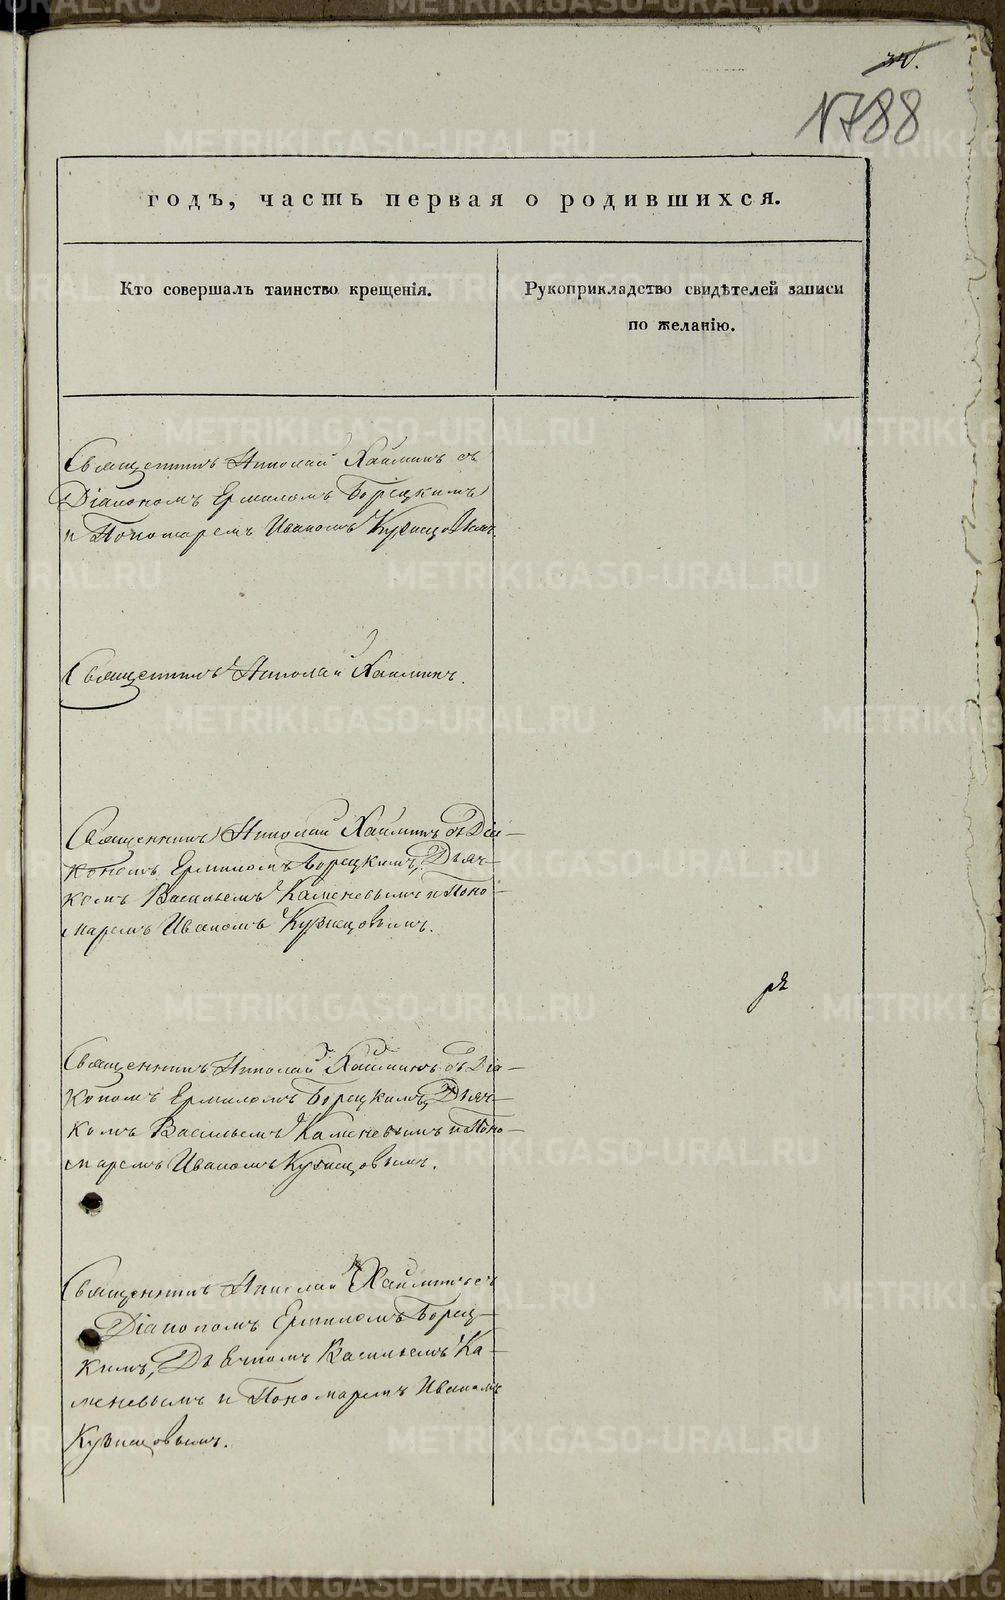 34.
№788
годъ, часть первая о родившихся.
Кто совершалъ таинство крещенія.
Рукоприкладство свидѣтелей записи
по желанію.
Священникъ Николай Хайминъ съ
Діакономъ Ермиломъ Борецкимъ
и Пономаремъ Иваномъ Кузнецовымъ.
Священникъ Николай Хайминъ.
Священникъ Николай Хайминъ съ Діа-
кономъ Ермиломъ Борецкимъ, Дьяч-
комъ Васильемъ Каменевымъ и Поно-
маремъ Иваномъ Кузнецовымъ.
Священникъ Николай Хайминъ съ Діа-
кономъ Ермиломъ Борецкимъ, Дьяч-
комъ Васильемъ Каменевымъ и Поно-
маремъ Иваномъ Кузнецовымъ.
Священникъ Николай Хайминъ съ
Діакономъ Ермиломъ Борец-
кимъ, Дьячкомъ Васильемъ Ка-
меневымъ и Пономаремъ Иваномъ
Кузнецовымъ.
METRIKI.GASO-URAL.RU